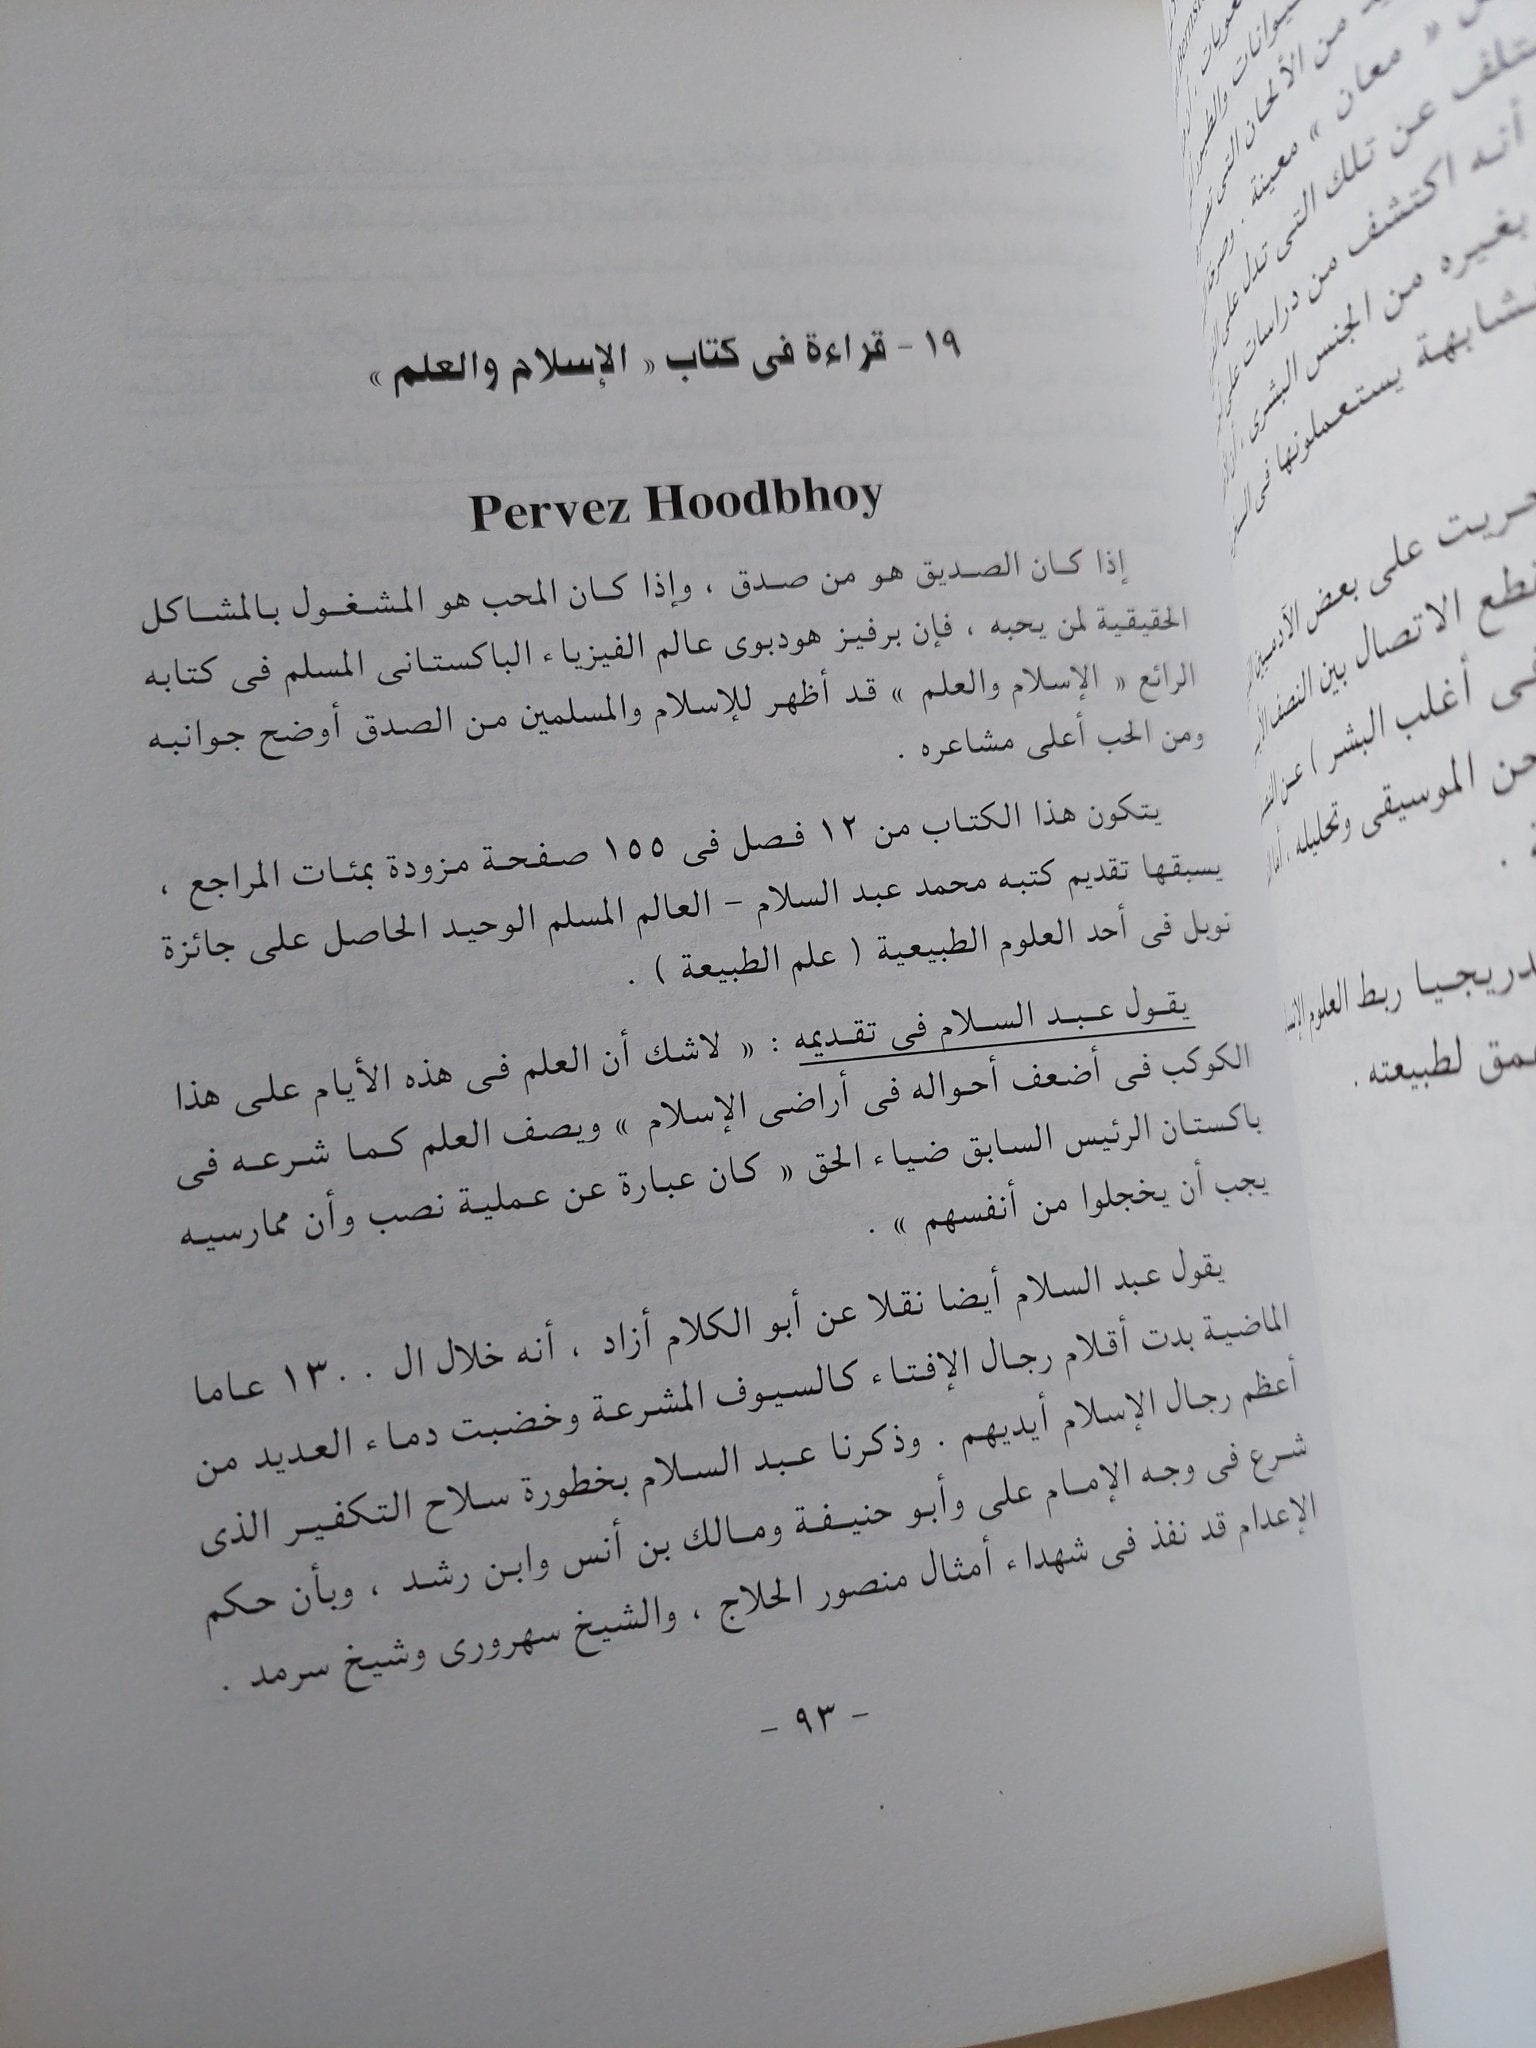 ١٩ - قراءة فى كتاب « الإسلام والعلم »
Pervez Hoodbhoy
إذا كان الصديق هو من صدق ، وإذا كان المحب هو المشغول بالمشاكل
الحقيقية لمن يحبه ، فإن برفيز هودبوى عالم الفيزياء الباكستانى المسلم فى كتابه
الرائع « الإسلام والعلم » قد أظهر للإسلام والمسلمين من الصدق أوضح جوانبه
ومن الحب أعلى مشاعره .
يتكون هذا الكتاب من ١٢ فصل فى ١٥٥ صفحة مزودة بمئات المراجع ،
يسبقها تقديم كتبه محمد عبد السلام - العالم المسلم الوحيد الحاصل على جائزة
نوبل فى أحد العلوم الطبيعية ( علم الطبيعة ) .
يقول عبد السلام فى تقديمه : « لاشك أن العلم فى هذه الأيام على هذا
الكوكب فى أضعف أحواله فى أراضى الإسلام » ويصف العلم كما شرعه فى
باكستان الرئيس السابق ضياء الحق « كان عبارة عن عملية نصب وأن ممارسيه
يجب أن يخجلوا من أنفسهم » .
يقول عبد السلام أيضا نقلا عن أبو الكلام أزاد ، أنه خلال ال ١٣٠٠ عاما
الماضية بدت أقلام رجال الإفتاء كالسيوف المشرعة وخضبت دماء العديد من
أعظم رجال الإسلام أيديهم . وذكرنا عبد السلام بخطورة سلاح التكفير الذى
شرع فى وجه الإمام على وأبو حنيفة ومالك بن أنس وابن رشد ، وبأن حكم
الإعدام قد نفذ فى شهداء أمثال منصور الحلاج ، والشيخ سهرورى وشيخ سرمد .
- ٩٣ -
من الألحان التى
« معان » معينة .
تلف عن تلك التى تدل على
أنه اكتشف من دراسات على
بغيره من الجنس البشرى ،
شابهة يستعملونها فى
جريت على بعض الآدميين
قطع الاتصال بين النصف
فى أغلب البشر ) عن
حن الموسيقى وتحليله ،
دريجيا ربط العلوم
عمق لطبيعته .